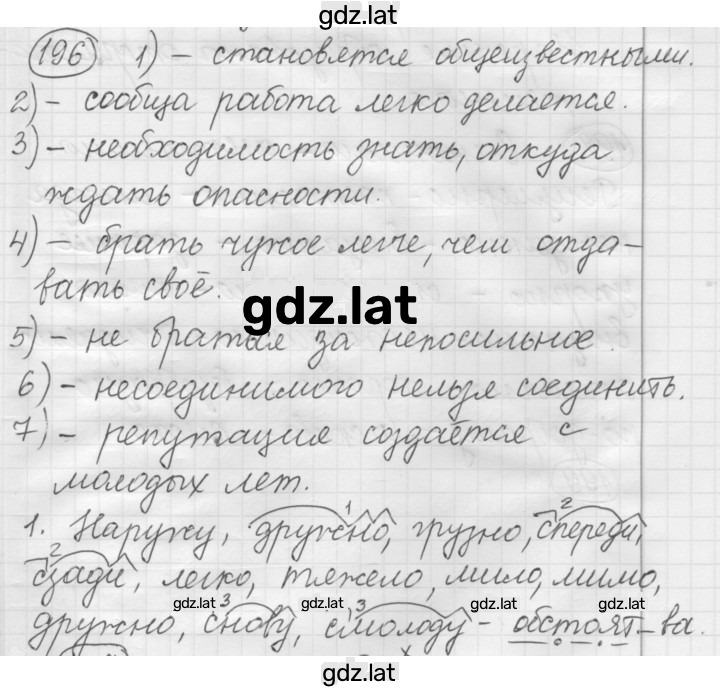 gdz.lat
196 1) – становятся общеизвестными.
2) – сообща работа легко делается.
3) – необходимость знать, откуда
ждать опасности.
4) – брать чужое легче, чем отда-
вать своё.
gdz.lat
5) – не браться за непосильное.
6) – несоединимого нельзя соединить.
7) – репутация создаётся с
молодых лет.
1. Наружу, дружно, грузно, спереди,
сзади, легко, тяжело, мило, мимо,
gdz.lat gdz.lat gdz.lat
дружно, снову, смолоду – обстоят-ва.
gdz.lat